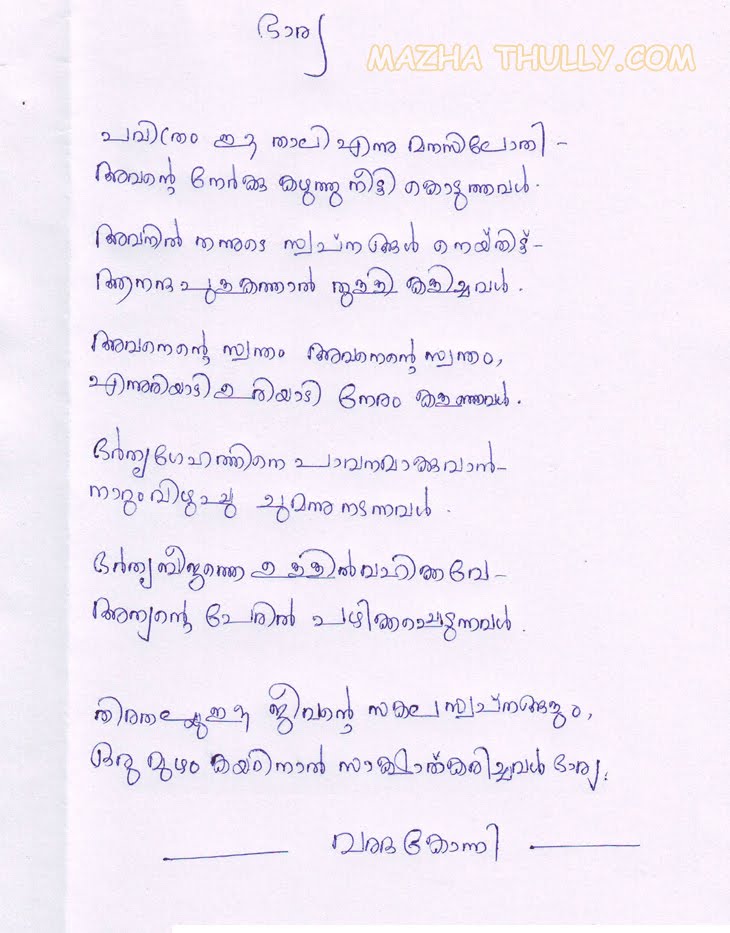 ഭാര്യ
MAZHA THULLY.COM
പവിത്രം ഈ താലി എന്നു മനസിലോതി -
അവന്റെ നേർക്കു കഴുത്തു നീട്ടി കൊടുത്തവൾ.
അവനിൽ തന്നുടെ സ്വപ്നങ്ങൾ നെയ്തിട്ട് -
ആനന്ദ പുളകത്താൽ തുള്ളി കളിച്ചവൾ.
അവനെന്റെ സ്വന്തം അവനെന്റെ സ്വന്തം,
എന്നുരിയാടി ഉരിയാടി നേരം കളഞ്ഞവൾ.
ഭർതൃഗേഹത്തിനെ പാവനമാക്കുവാൻ -
നാറും വിഴുപ്പു ചുമന്നു നടന്നവൾ.
ഭർതൃബീജത്തെ ഉള്ളിൽ വഹിക്കവേ -
അന്യന്റെ പേരിൽ പഴിക്കപ്പെടുന്നവൾ.
തിരതല്ലുംഈ ജീവന്റെ സകല സ്വപ്നങ്ങളും,
ഒരു മുഴം കയറിനാൽ സാക്ഷാത്കരിച്ചവൾ ഭാര്യ.
വരദ കോന്നി